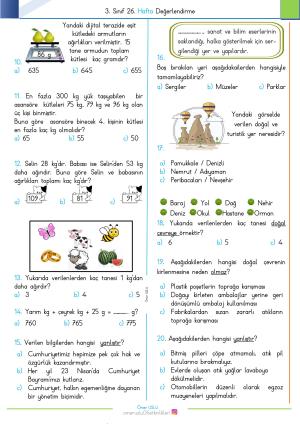 3. Sınıf 26. Hafta Değerlendirme
Yandaki dijital terazide eşit
kütledeki armutların
ağırlıkları verilmiştir. 15
tane armudun toplam
kütlesi kaç gramdır?
10.
a) 635 b) 645 c) 655
11. En fazla 300 kg yük taşıyabilen bir
asansöre kütleleri 75 kg, 79 kg ve 96 kg olan
üç kişi binmiştir.
Buna göre asansöre binecek 4. kişinin kütlesi
en fazla kaç kg olmalıdır?
a) 65 b) 55 c) 50
12. Selin 28 kg'dır. Babası ise Selin'den 53 kg
daha ağırdır. Buna göre Selin ve babasının
ağırlıkları toplamı kaç kg'dır?
a) 109 b) 81 c) 91
13. Yukarıda verilenlerden kaç tanesi 1 kg'dan
daha ağırdır?
a) 3 b) 4 c) 5
14. Yarım kg + çeyrek kg + 25 g = ........ g?
a) 760 b) 765 c) 775
15. Verilen bilgilerden hangisi yanlıştır?
a) Cumhuriyetimiz hepimize pek çok hak ve
özgürlük kazandırmıştır.
b) Her yıl 23 Nisan'da Cumhuriyet
Bayramımızı kutlarız.
c) Cumhuriyet, halkın egemenliğine dayanan
bir yönetim biçimidir.
.................., sanat ve bilim eserlerinin
saklandığı, halka gösterilmek için ser-
gilendiği yer ve yapılardır.
16.
Boş bırakılan yeri aşağıdakilerden hangisiyle
tamamlayabiliriz?
a) Sergiler b) Müzeler c) Parklar
Yandaki görselde
verilen doğal ve
turistik yer neresidir?
17.
a) Pamukkale / Denizli
b) Nemrut / Adıyaman
c) Peribacaları / Nevşehir
Baraj Yol Dağ Nehir
Deniz Okul Hastane Orman
18. Yukarıda verilenlerden kaç tanesi doğal
çevreye örnektir?
a) 6 b) 5 c) 4
19. Aşağıdakilerden hangisi doğal çevrenin
kirlenmesine neden olmaz?
a) Plastik poşetlerin toprağa karışması
b) Doğayı kirleten ambalajlar yerine geri
dönüşümlü ambalaj kullanılması
c) Fabrikalardan sızan zararlı atıkların
toprağa karışması
20. Aşağıdakilerden hangisi yanlıştır?
a) Bitmiş pilleri çöpe atmamalı, atık pil
kutularına bırakmalıyız.
b) Evlerde oluşan atık yağlar lavaboya
dökülmelidir.
c) Otomobillerin düzenli olarak egzoz
muayeneleri yapılmalıdır.